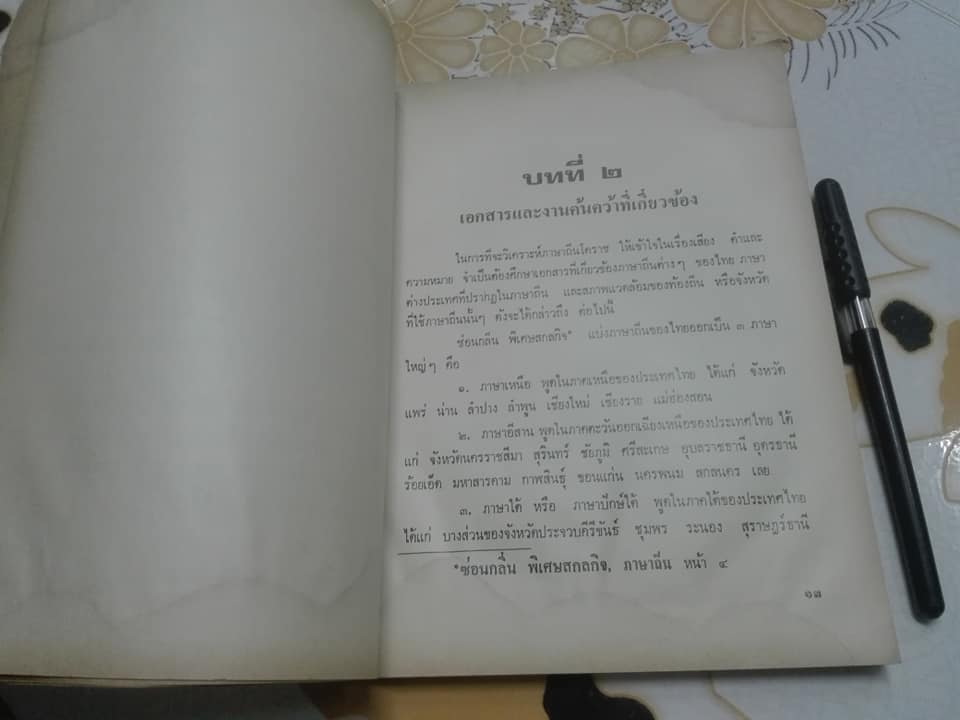 บทที่ ๒
เอกสารและงานค้นคว้าที่เกี่ยวข้อง
ในการที่จะวิเคราะห์ภาษาถิ่นโคราช ให้เข้าใจในเรื่องเสียง คำและ
ความหมาย จำเป็นต้องศึกษาเอกสารที่เกี่ยวข้องภาษาถิ่นต่างๆ ของไทย ภาษา
ต่างประเทศที่ปรากฏในภาษาถิ่น และสภาพแวดล้อมของท้องถิ่น หรือจังหวัด
ที่ใช้ภาษาถิ่นนั้นๆ ดังจะได้กล่าวถึง ต่อไปนี้
ซ่อนกลิ่น พิเศษสกลกิจ* แบ่งภาษาถิ่นของไทยออกเป็น ๓ ภาษา
ใหญ่ๆ คือ
๑. ภาษาเหนือ พูดในภาคเหนือของประเทศไทย ได้แก่ จังหวัด
แพร่ น่าน ลำปาง ลำพูน เชียงใหม่ เชียงราย แม่ฮ่องสอน
๒. ภาษาอีสาน พูดในภาคตะวันออกเฉียงเหนือของประเทศไทย ได้
แก่ จังหวัดนครราชสีมา สุรินทร์ ชัยภูมิ ศรีสะเกษ อุบลราชธานี อุดรธานี
ร้อยเอ็ด มหาสารคาม กาฬสินธุ์ ขอนแก่น นครพนม สกลนคร เลย
๓. ภาษาใต้ หรือ ภาษาปักษ์ใต้ พูดในภาคใต้ของประเทศไทย
ได้แก่ บางส่วนของจังหวัดประจวบคีรีขันธ์ ชุมพร ระนอง สุราษฎร์ธานี
*ซ่อนกลิ่น พิเศษสกลกิจ, ภาษาถิ่น หน้า ๔
๑๓